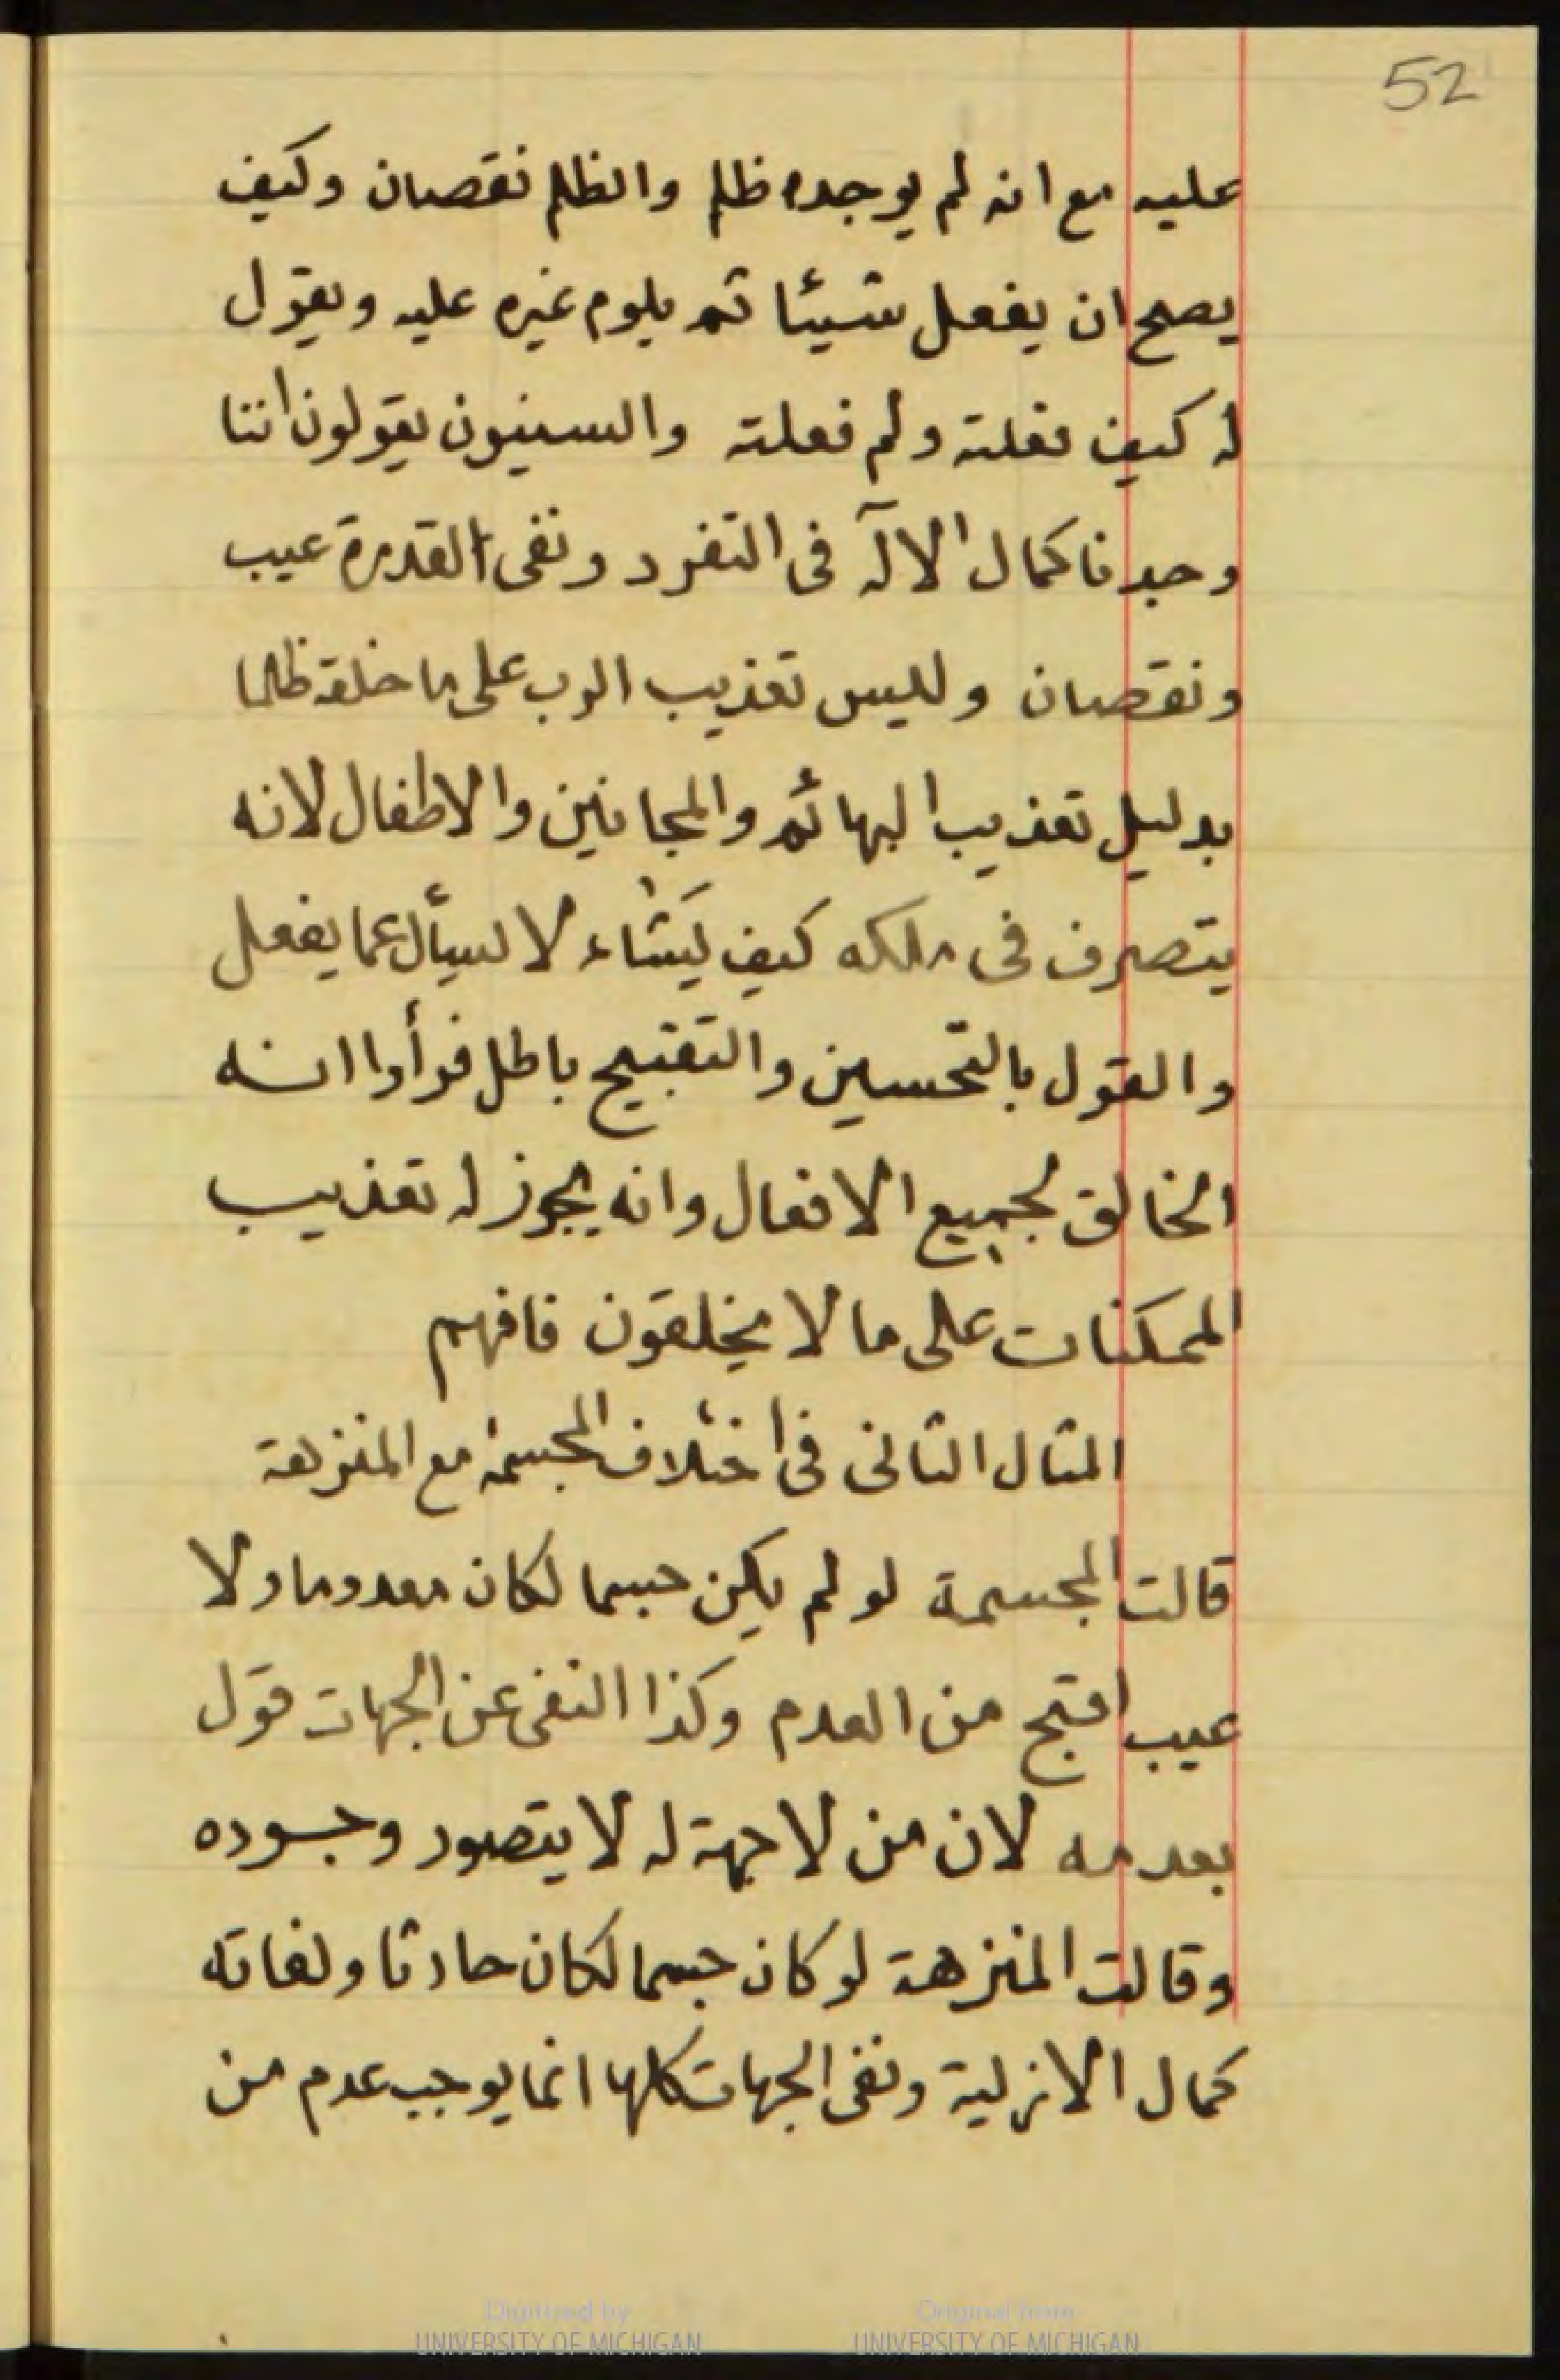 52
عليه مع انه لم يوجده ظلم والظلم نقصان وكيف
يصح ان يفعل شيئا ثم يلوم غيره عليه ويقول
له كيف فعلته ولم فعلته والسنيون يقولون اننا
وجدنا كمال الاله فى التفرد ونفى القدرة عيب
ونقصان وليس تعذيب الرب على ما خلقه ظلما
بدليل تعذيب البهائم والمجانين والاطفال لانه
يتصرف فى ملكه كيف يَشاء لا يسأل عما يفعل
والقول بالتحسين والتقبيح باطل فرأوا انه
الخالق لجميع الافعال وانه يجوز له تعذيب
الممكنات على ما لا يخلقون فافهم
المثال الثانى فى اختلاف المجسمة مع المنزهة
قالت المجسمة لو لم يكن جسما لكان معدوما ولا
عيب اقبح من العدم وكذا النفى عن الجهات قول
بعدمه لان من لا جهة له لا يتصور وجوده
وقالت المنزهة لو كان جسما لكان حادثا ولفاته
كمال الازلية ونفى الجهات كلها انما يوجب عدم من
Digitized by
UNIVERSITY OF MICHIGAN
Original from
UNIVERSITY OF MICHIGAN